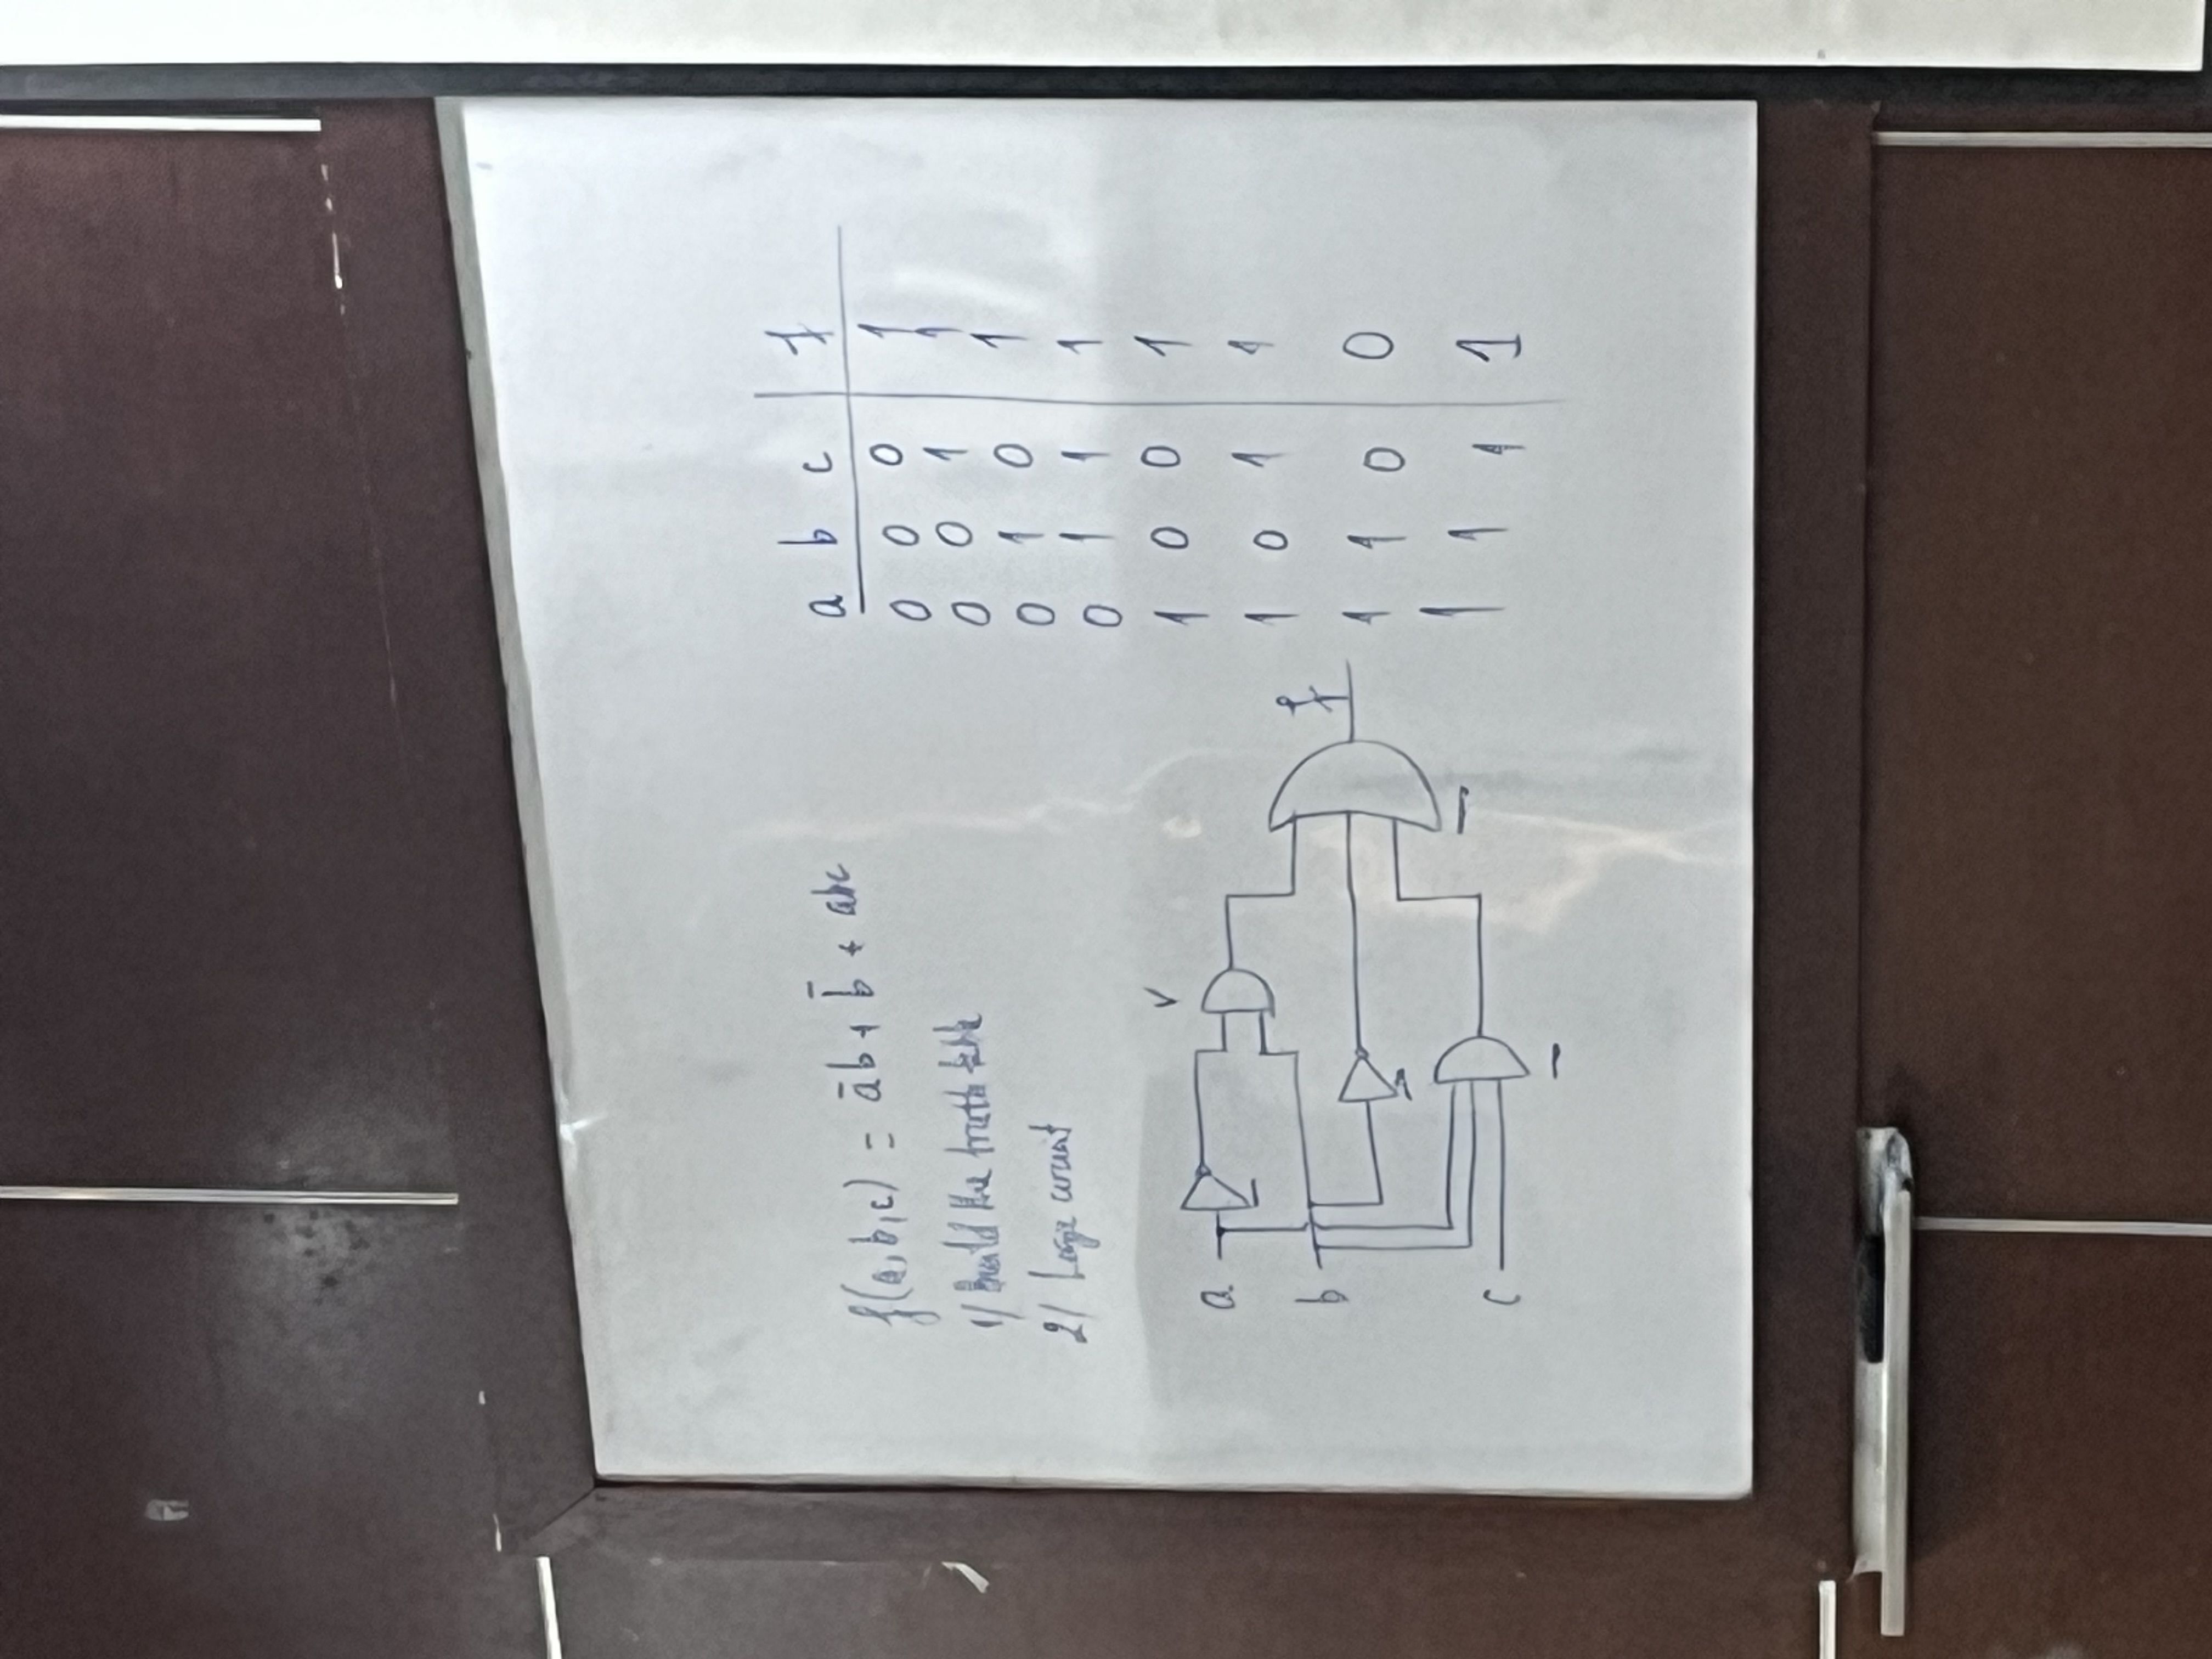 f(a,b,c) = āb + b̄ + abc
1/ Build the truth table
2/ Logic circuit
a
b
c
f
a b c f
0 0 0 1
0 0 1 1
0 1 0 1
0 1 1 1
1 0 0 1
1 0 1 1
1 1 0 0
1 1 1 1